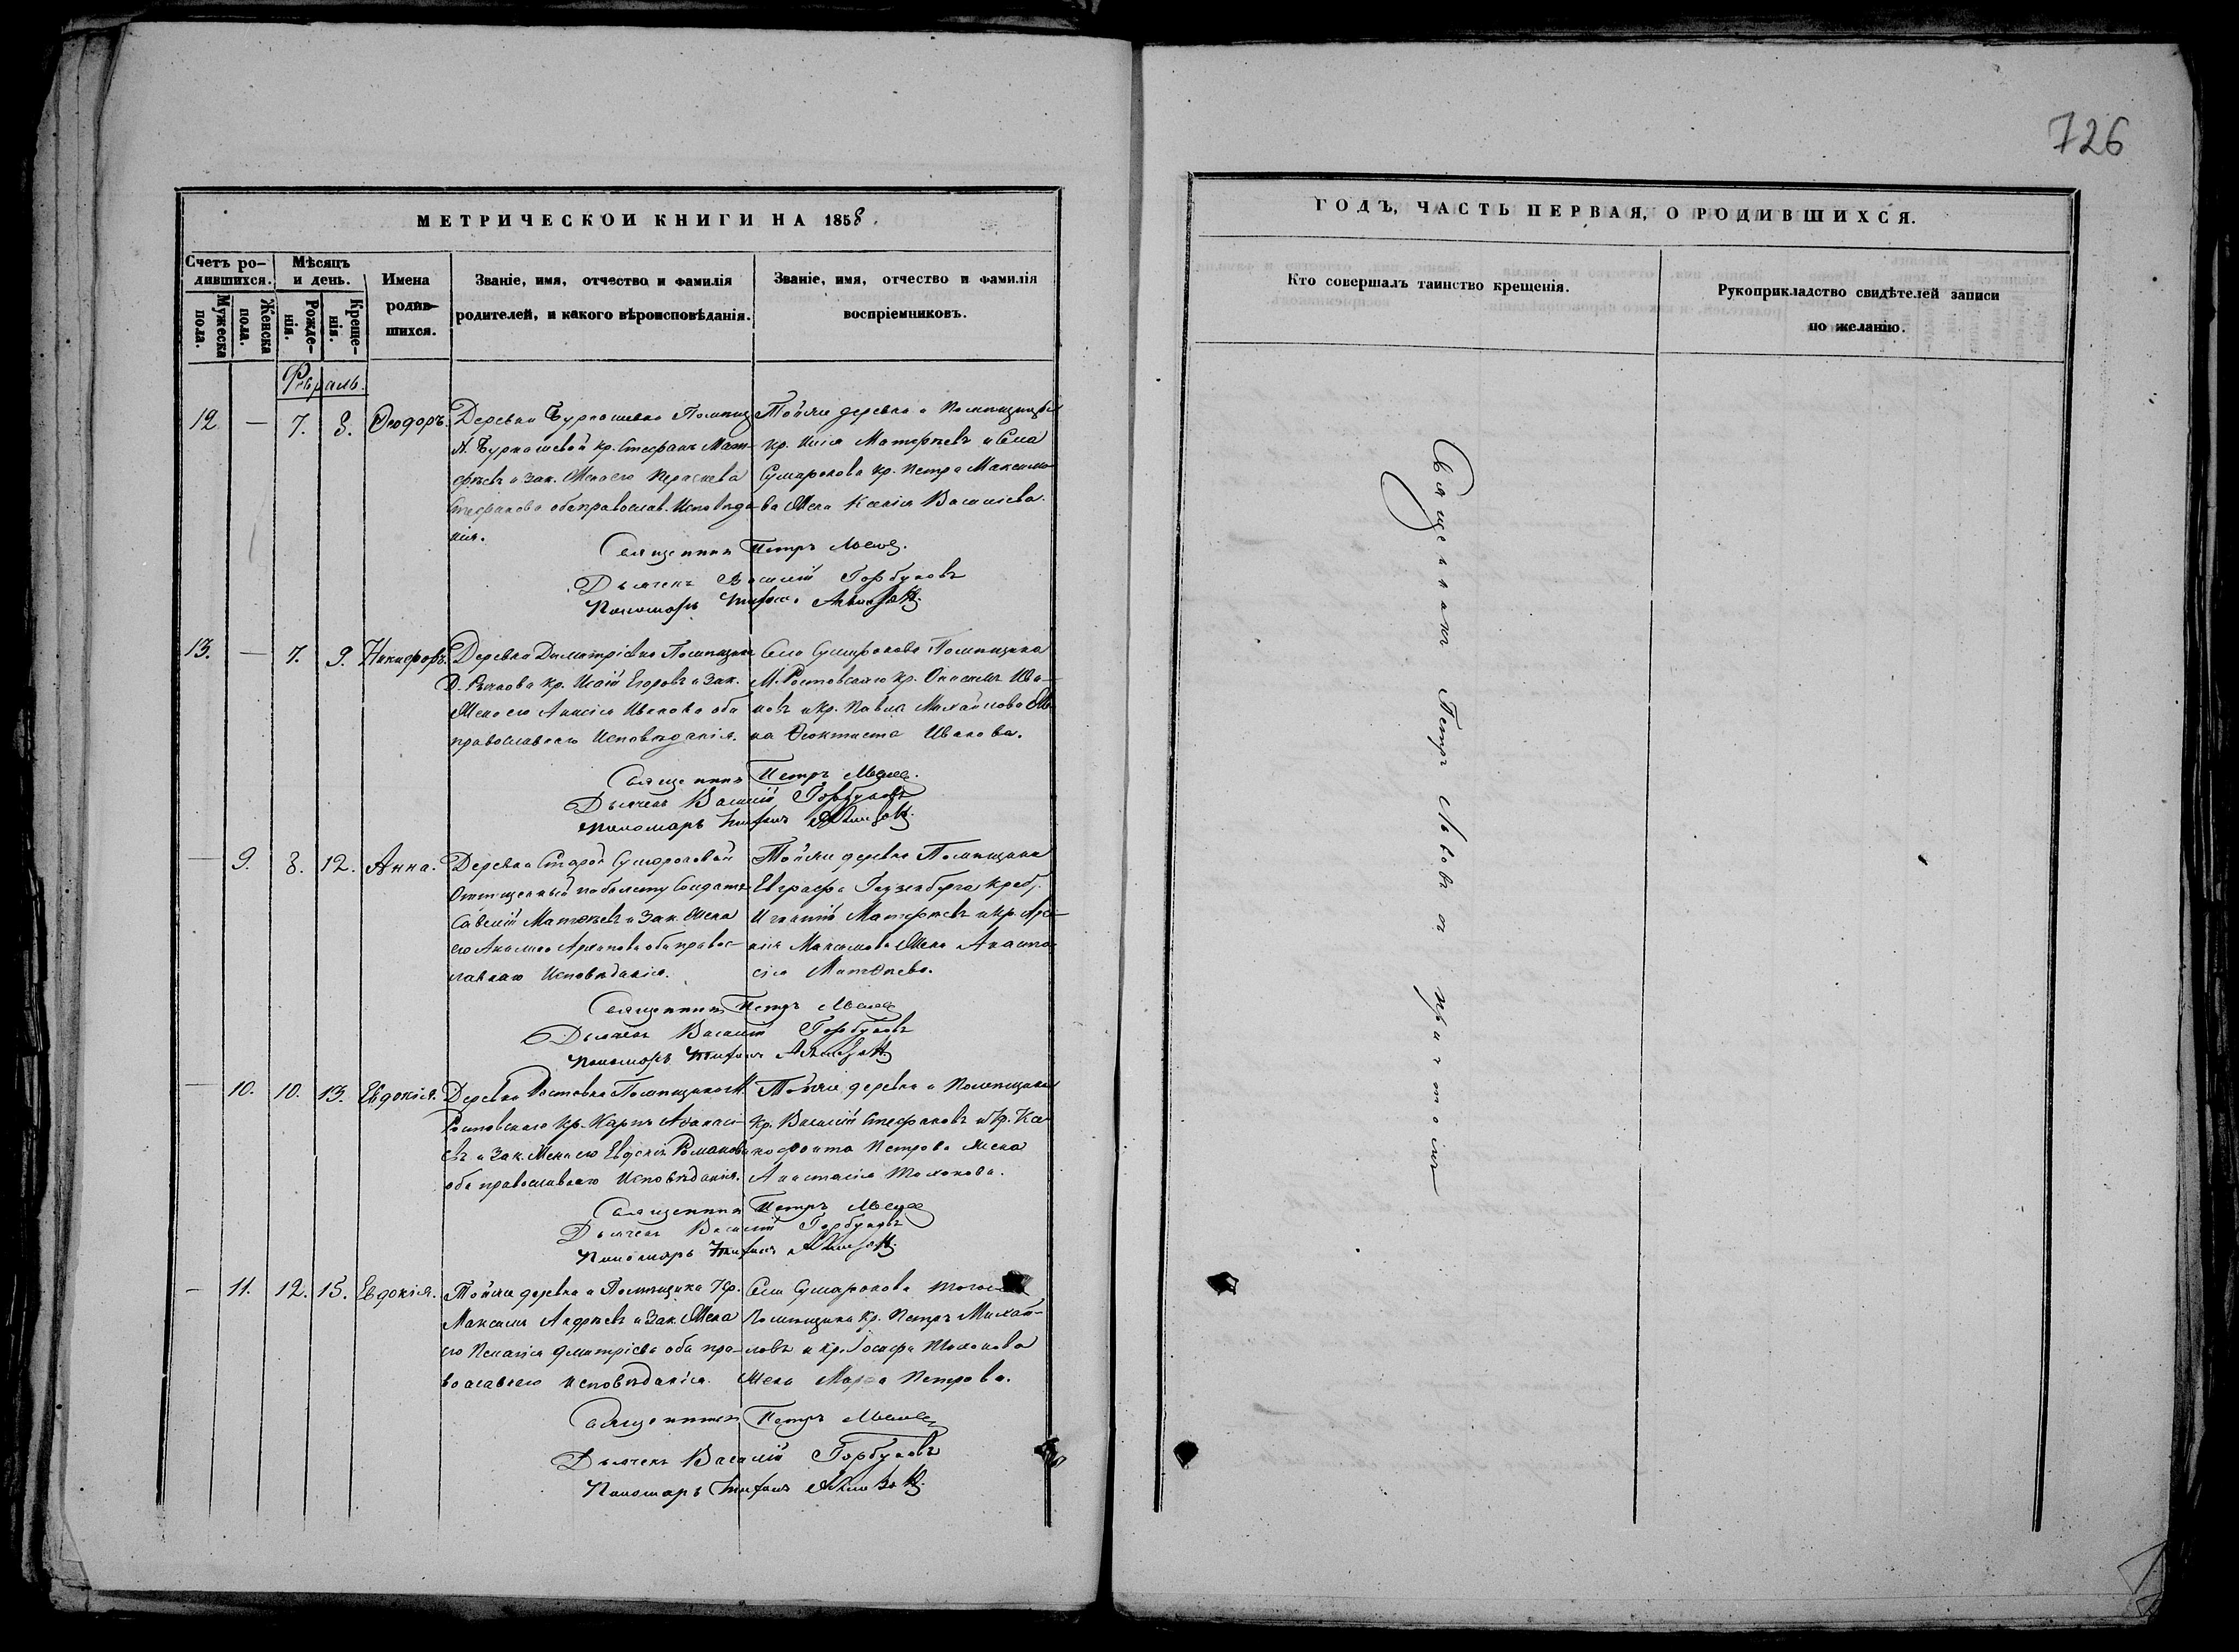 726
МЕТРИЧЕСКОЙ КНИГИ НА 1858.
Счетъ родившихся.
Мужеска пола.
Женска пола.
Мѣсяцъ и день.
Рожденія.
Крещенія.
Имена родившихся.
Званіе, имя, отчество и фамилія
родителей, и какого вѣроисповѣданія.
Званіе, имя, отчество и фамилія
воспріемниковъ.
Февраль.
12 — 7. 8. Ѳеодоръ.
Деревни Бурнашевки Помѣщиц
А. Бурнашевой кр. Стефанъ Мат-
фѣевъ и зак. Жена его
Стефанова оба православ. Исповѣда-
нія.
Тойже деревни и Помѣщицы
кр. Илія Матфѣевъ и Села
Сумарокова кр. Петра Максимо-
ва Жена Ксенія Василіева.
Священникъ Петръ Львовъ.
Дьячекъ Василій Горбуновъ
Пономарь Тихонъ
13. — 7. 9. Никифоръ.
Деревни Димитріевки Помѣщика
Д. Рѣпнова кр. Исаій Егоровъ и Зак.
Жена его Анисія Иванова оба
православнаго Исповѣданія.
Села Сумарокова Помѣщика
М. Ростовскаго кр. Онисимъ Ива-
новъ и кр. Павла Михайлова Же-
на Ѳеоктиста Иванова.
Священникъ Петръ Львовъ.
Дьячекъ Василій Горбуновъ
Пономарь Тихонъ
— 9. 8. 12. Анна.
Деревни Старой Сумароковой
Отпущенный по билету Солдатъ
Савелій Матвѣевъ и Зак. Жена
его Акилина оба правос-
лавнаго Исповѣданія.
Тойже деревни Помѣщика
Евграфа
Игнатій Матфѣевъ и кр.
Максимова Жена Анаста-
сія Матвѣева.
Священникъ Петръ Львовъ
Дьячекъ Василій Горбуновъ
Пономарь Тихонъ
— 10. 10. 13. Евдокія.
Деревни Ростовки Помѣщика М.
Ростовскаго Кр. Карпъ Аѳанасі-
евъ и Зак. Жена его Евдокія Романова
оба православнаго Исповѣданія.
Тойже деревни и Помѣщика
Кр. Василій Стефановъ и Кр. Ксе-
нофонта Петрова Жена
Анастасія
Священникъ Петръ Львовъ
Дьячекъ Василій Горбуновъ
Пономарь Тихонъ
— 11. 12. 15. Евдокія.
Тойже деревни и Помѣщика Кр.
Максимъ Андрѣевъ и Зак. Жена
его Пелагія Димитріева оба пра-
вославнаго Исповѣданія.
Села Сумарокова
Помѣщика Кр. Петръ Михай-
ловъ и кр. Іосифа
Жена Марѳа Петрова.
Священникъ Петръ Львовъ
Дьячекъ Василій Горбуновъ
Пономарь Тихонъ
ГОДЪ, ЧАСТЬ ПЕРВАЯ, О РОДИВШИХСЯ.
Кто совершалъ таинство крещенія.
Рукоприкладство свидѣтелей записи
по желанію.
Священникъ Петръ Львовъ съ причтомъ